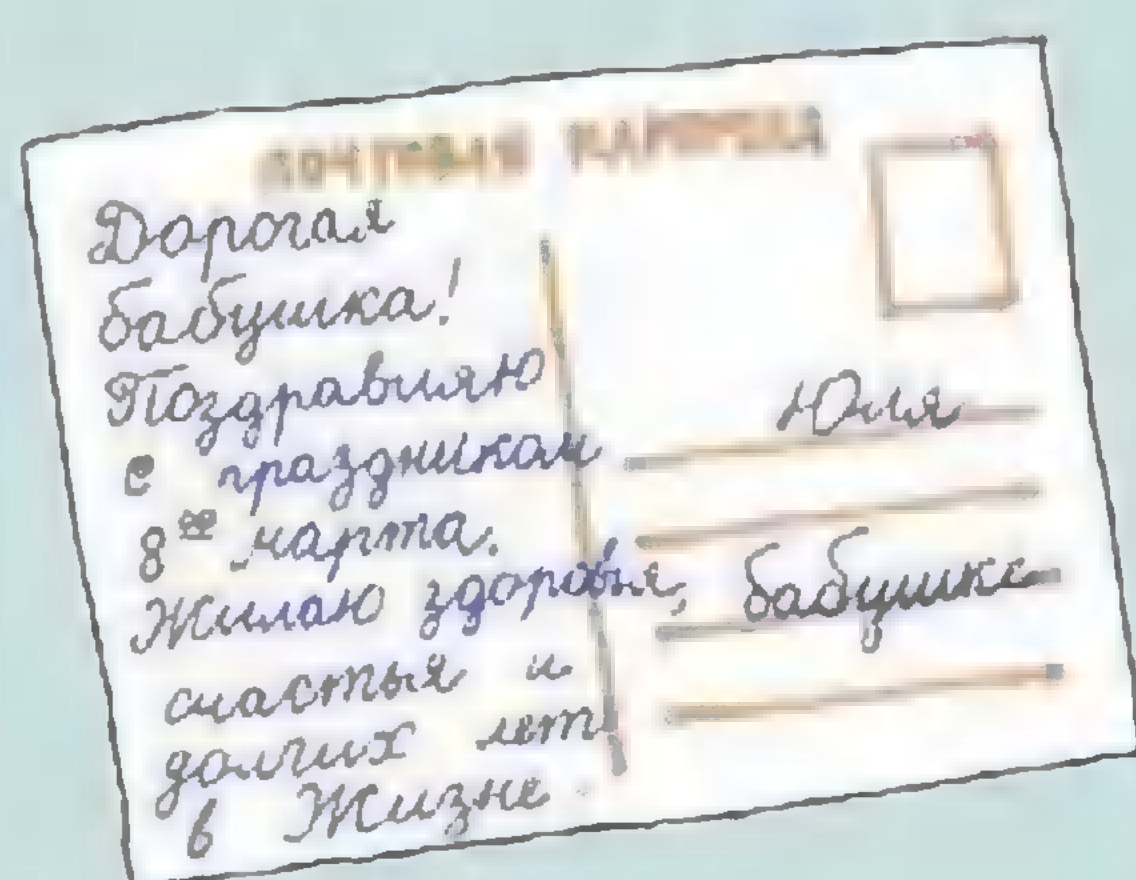 ПОЧТОВАЯ КАРТОЧКА
Дорогая
бабушка!
Поздравляю
с праздником
8ое марта.
Жилаю здоровья,
счастья и
долгих лет
в Жизне.
Юля
бабушке